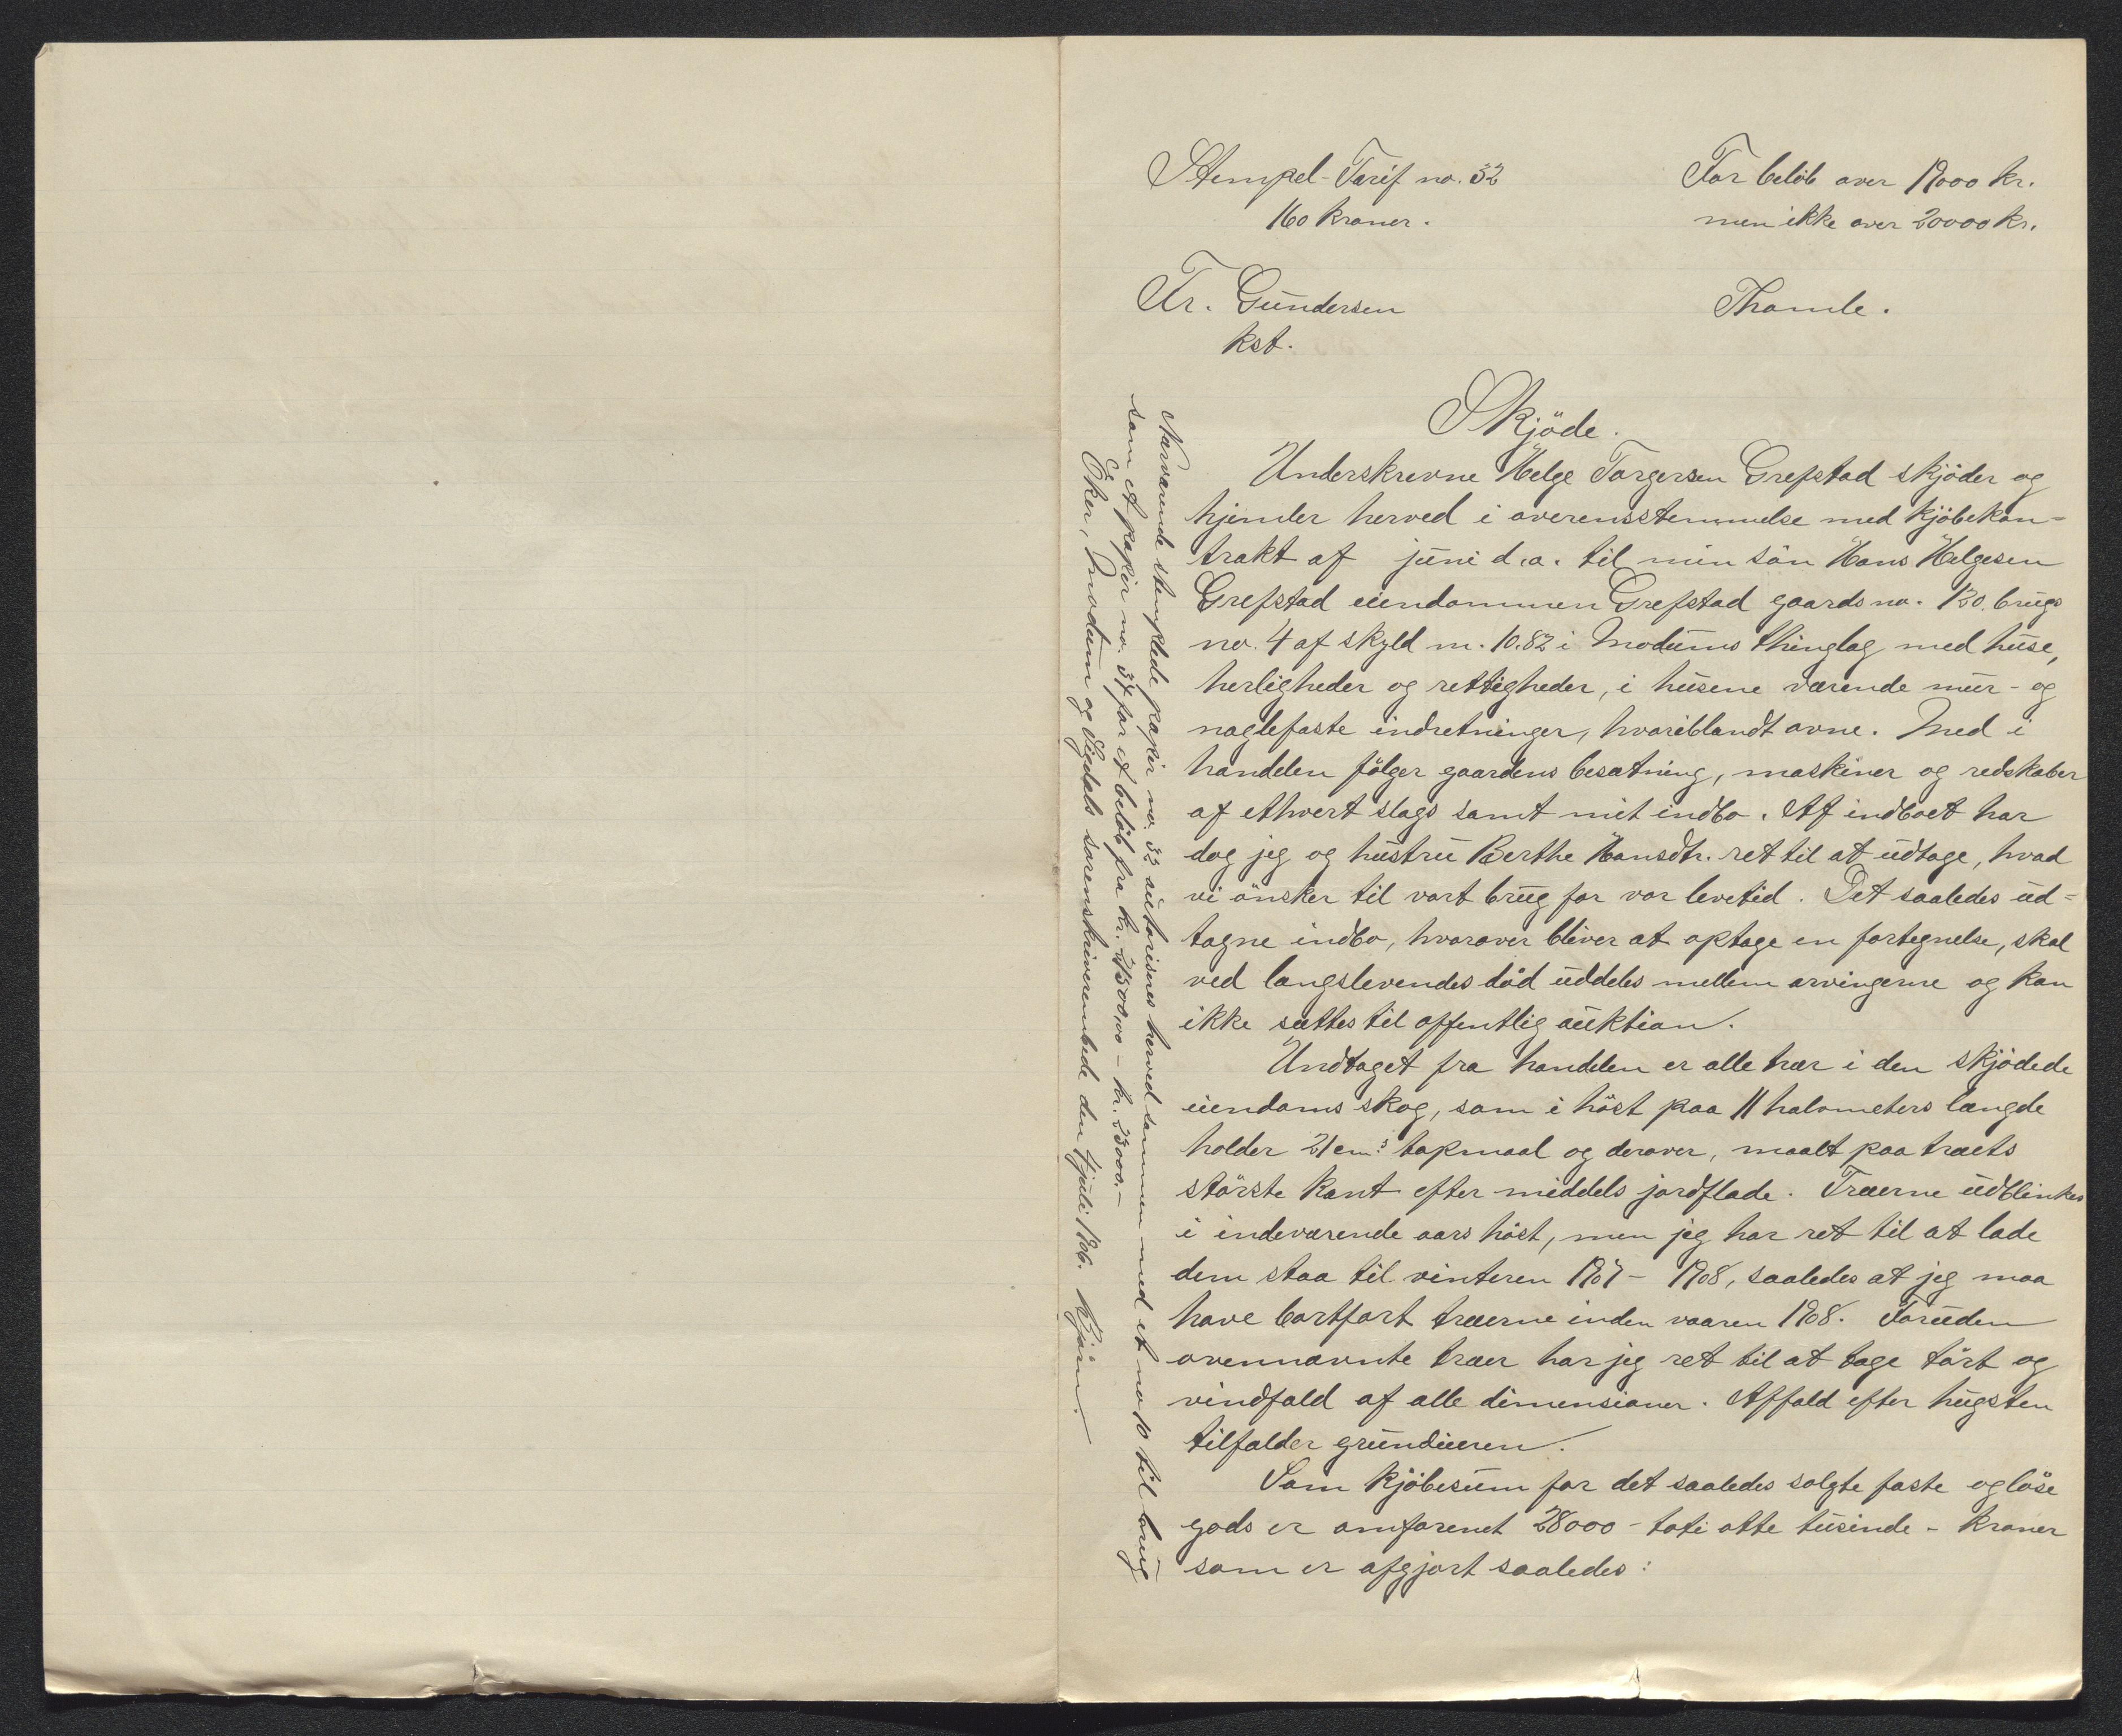 Stempel-Tarif no. 32
160 kroner.
For beløb over 19000 kr.
men ikke over 20000 kr.
Fr. Gundersen
kst.
Thomle.
Skjöde.
Underskrevne Helge Torgersen Grefstad skjöder og
hjemler herved i overensstemmelse med kjöbekon-
trakt af juni d.a. til min sön Hans Helgesen
Grefstad eiendommen Grefstad gaardsno. 130. brugs
no. 4 af skyld m. 10.82 i Modums thinglag med huse,
herligheder og rettigheder, i husene værende mur- og
naglefaste indretninger, hvoriblandt ovne. Med i
handelen fölger gaardens besætning, maskiner og redskaber
af ethvert slags samt mit indbo. Af indboet har
dog jeg og hustru Berthe Hansdtr. ret til at udtage, hvad
vi önsker til vort brug for vor levetid. Det saaledes ud-
tagne indbo, hvorover bliver at optage en fortegnelse, skal
ved længslevendes död uddeles mellem arvingerne og kan
ikke sættes til offentlig auktion.
Undtaget fra handelen er alle trær i den skjödede
eiendoms skog, som i höst paa 11 halvmeters længde
holder 21 cm.s topmaal og derover, maalt paa træets
störste kant efter middels jordflade. Træerne udblinkes
i indeværende aars höst, men jeg har ret til at lade
dem staa til vinteren 1907 - 1908, saaledes at jeg maa
have bortfört træerne inden vaaren 1908. Foruden
ovennævnte træer har jeg ret til at tage tört og
vindfald af alle dimensioner. Affald efter hugsten
tilfalder grundeieren.
Som kjöbesum for det saaledes solgte faste og löse
gods er omforenet 28000 - toti otte tusinde - kroner
som er afgjort saaledes:
Nærværende stemplede papir no. 32 autoriseres herved sammen med et no 10 til brug
som et papir no. 34 for et beløb fra kr. 21500,00 - kr. 23000.-
Öker, Modum og Sigdals sorenskriverembede den 4 juli 1906. Bjørn.